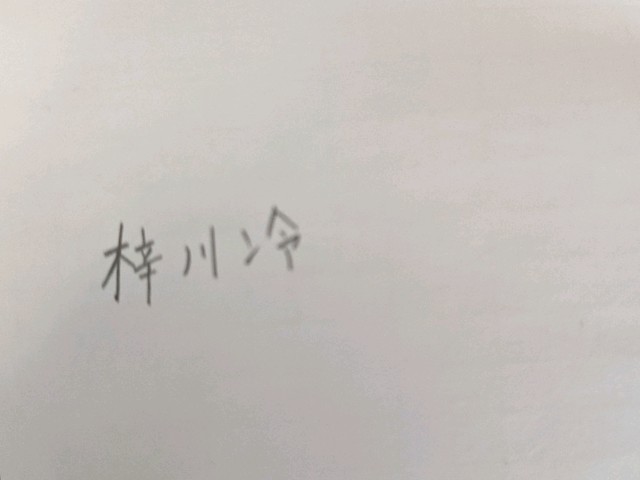 梓川冷